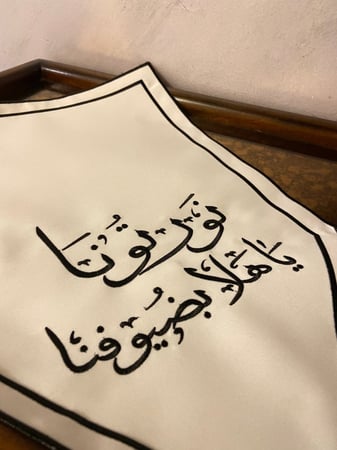 نَورتُونَا
يَا هَلا بضُيُوفنَا